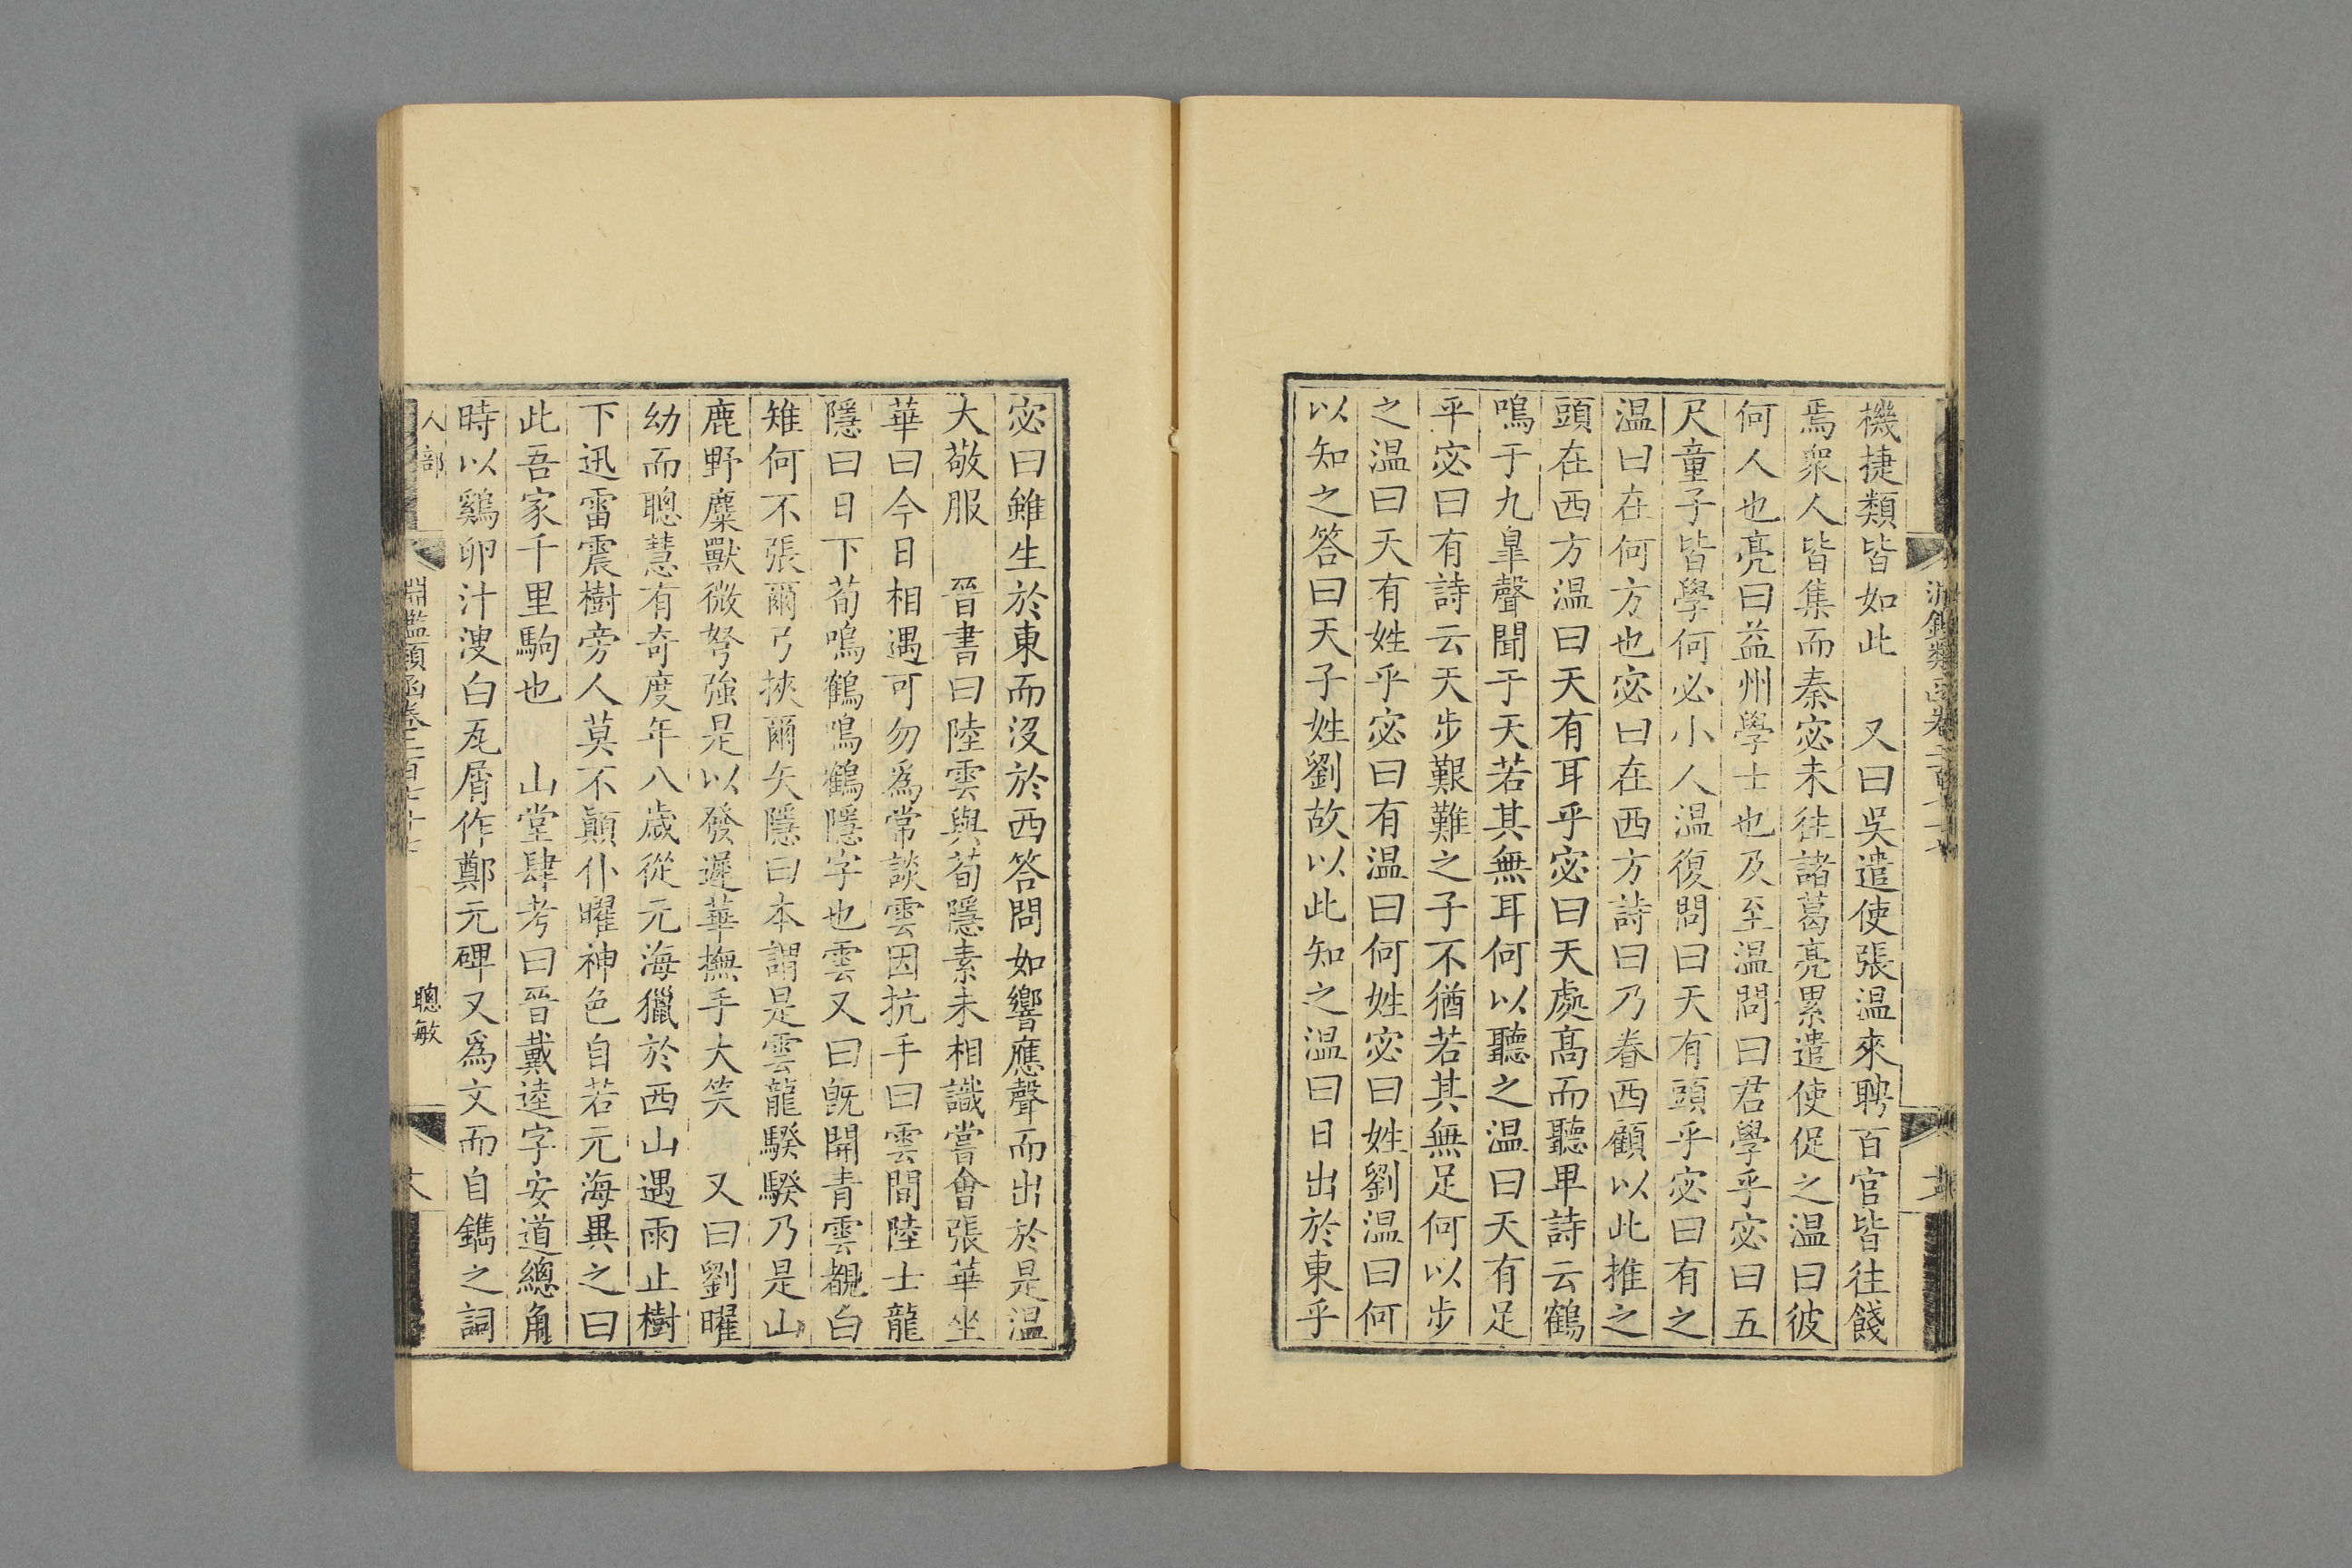 機捷類皆如此　又曰吳遣使張温來聘百官皆往餞
焉衆人皆集而秦宓未往諸葛亮累遣使促之温曰彼
何人也亮曰益州學士也及至温問曰君學乎宓曰五
尺童子皆學何必小人温復問曰天有頭乎宓曰有之
温曰在何方也宓曰在西方詩曰乃眷西顧以此推之
頭在西方温曰天有耳乎宓曰天處髙而聽卑詩云鶴
鳴于九臯聲聞于天若其無耳何以聽之温曰天有足
乎宓曰有詩云天步艱難之子不猶若其無足何以步
之温曰天有姓乎宓曰有温曰何姓宓曰姓劉温曰何
以知之答曰天子姓劉故以此知之温曰日出於東乎
宓曰雖生於東而没於西答問如響應聲而出於是温
大敬服　晉書曰陸雲與荀隱素未相識嘗會張華坐
華曰今日相遇可勿爲常談雲因抗手曰雲間陸士龍
隱曰日下荀鳴鶴鳴鶴隱字也雲又曰旣開青雲覩白
雉何不張爾弓挾爾矢隱曰本謂是雲龍騤騤乃是山
鹿野麋獸微弩強是以發遲華撫手大笑　又曰劉曜
幼而聰慧有奇度年八歲從元海獵於西山遇雨止樹
下迅雷震樹旁人莫不顚仆曜神色自若元海異之曰
此吾家千里駒也　山堂肆考曰晉戴逵字安道總角
時以鷄卵汁溲白瓦屑作鄭元碑又爲文而自鐫之詞
人部
淵鑑類函卷二百七十七
聰敏